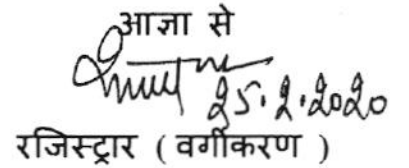 आज्ञा से
25.2.2020
रजिस्ट्रार ( वर्गीकरण )